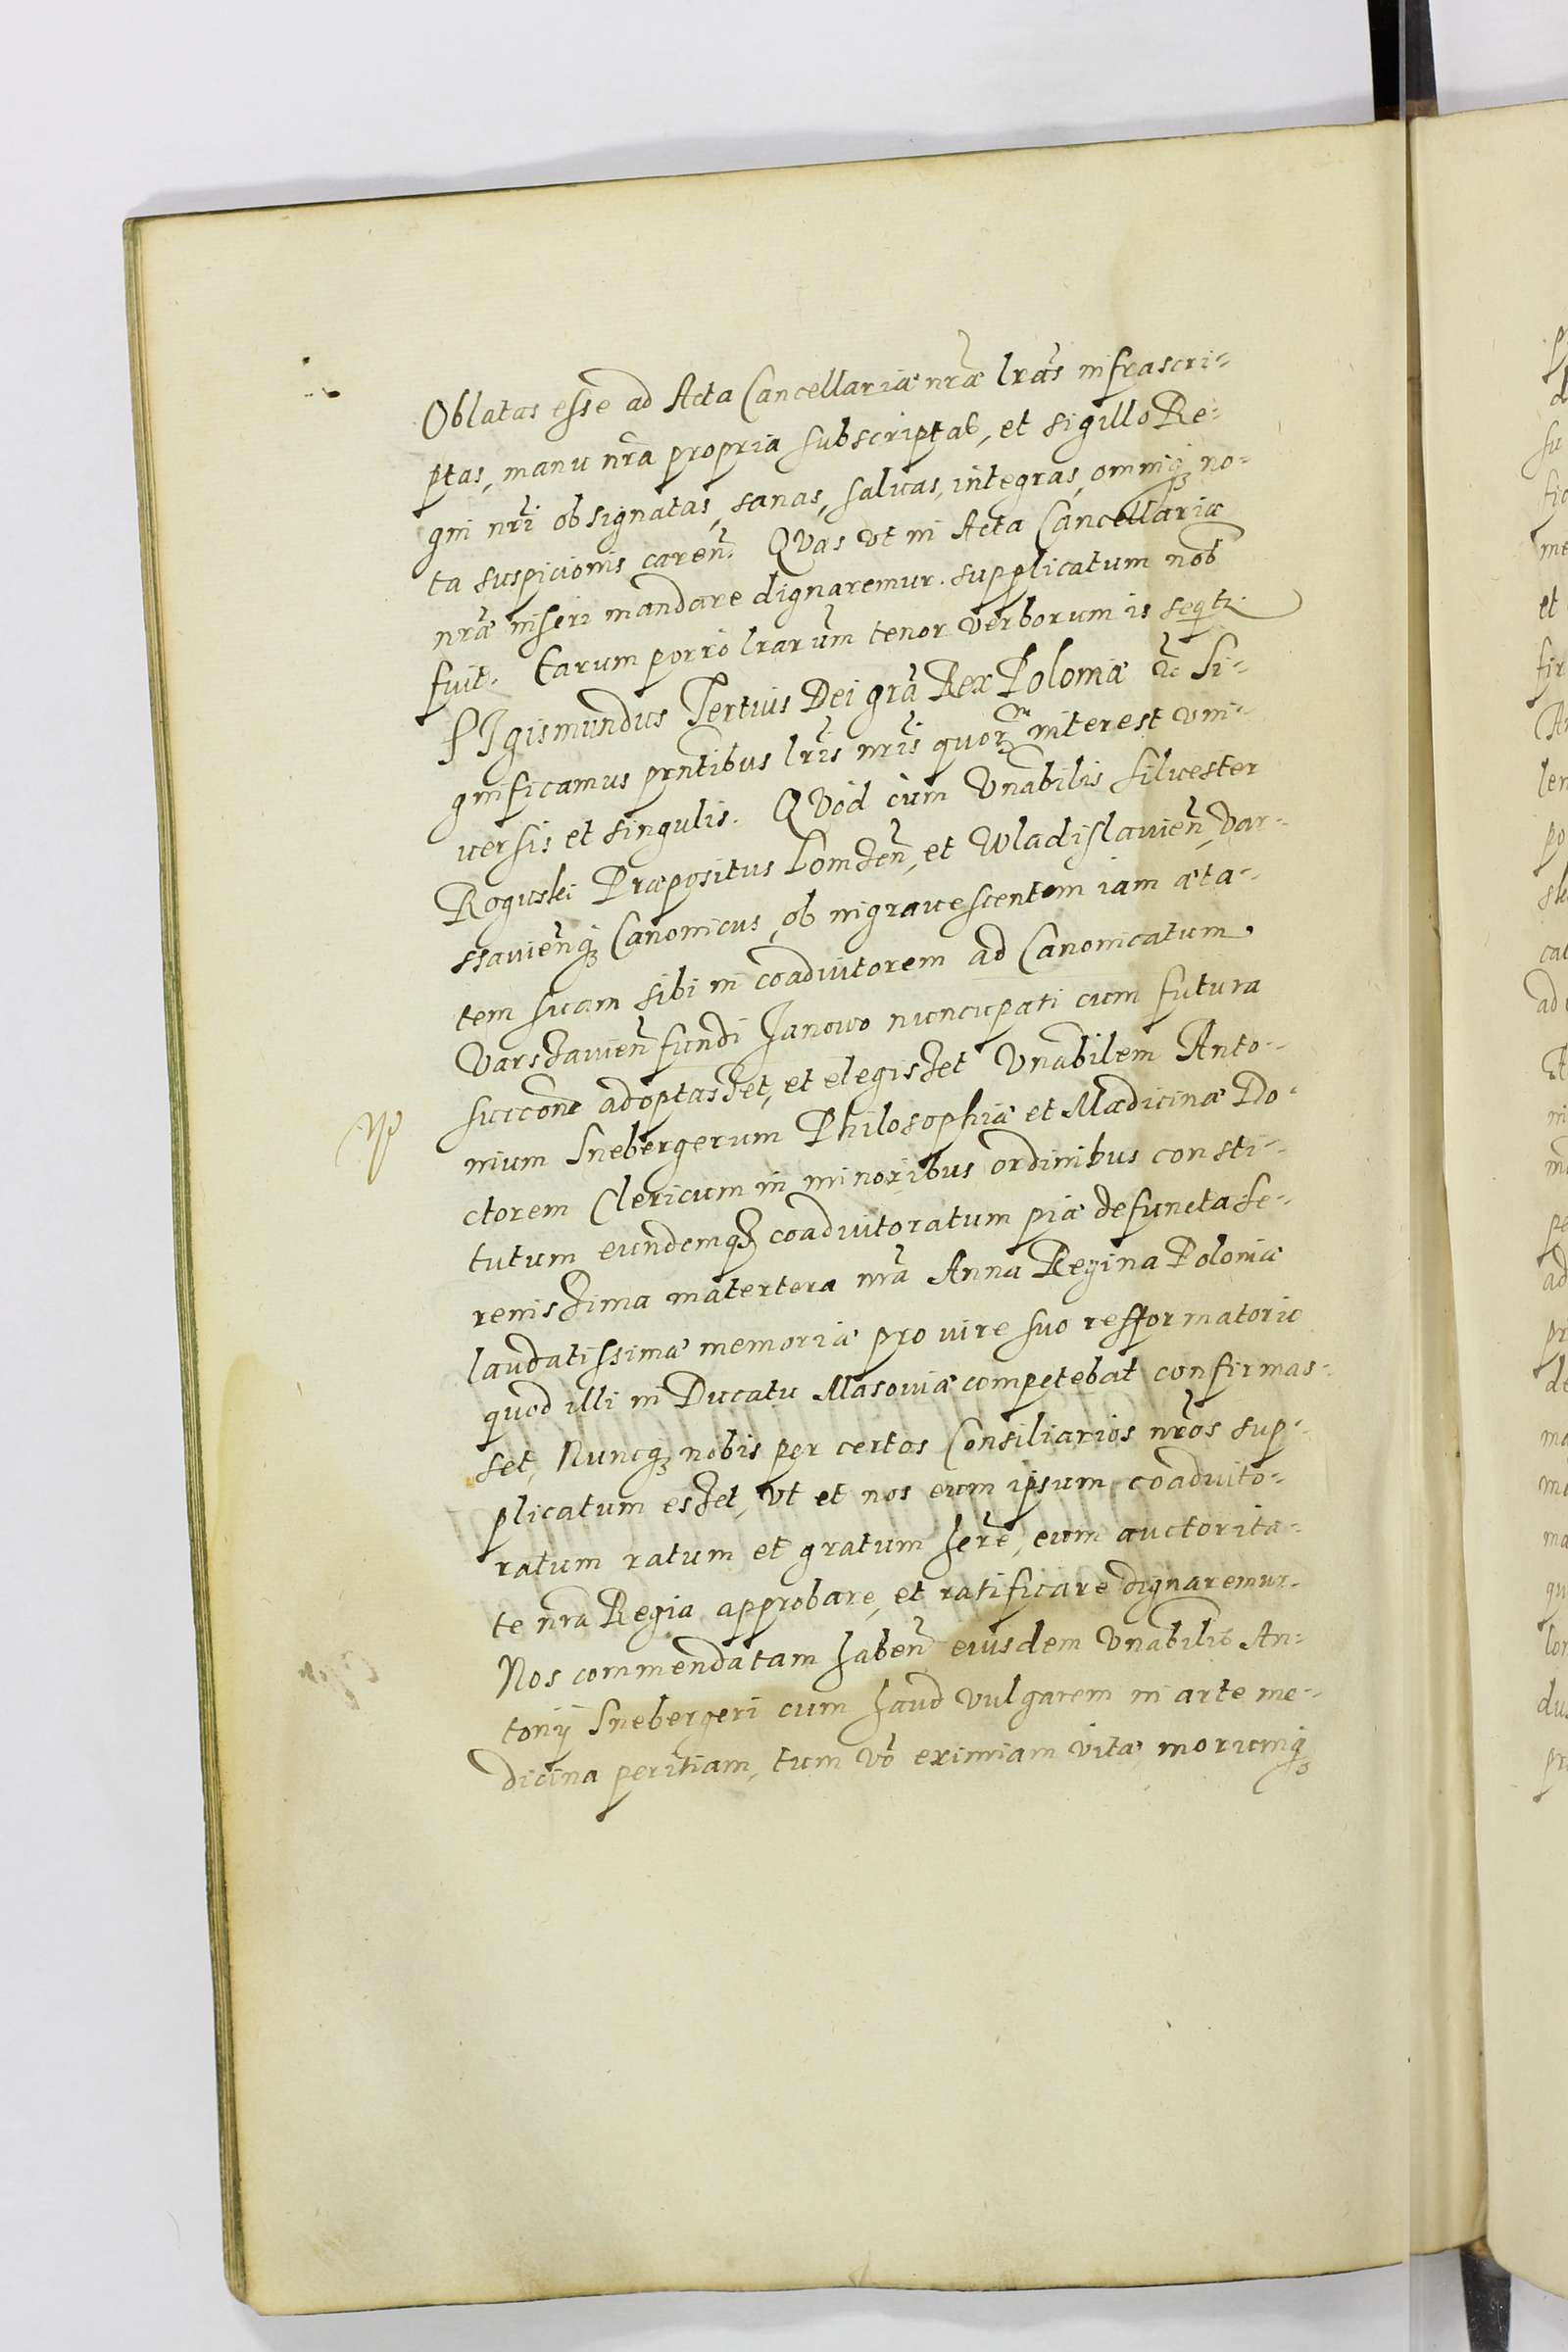 Oblatas esse ad Acta Cancellariæ nræ lras infrascri-
ptas, manu nra propria subscriptas, et sigillo Re-
gni nri obsignatas, sanas, salvas, integras, omniq3 no-
ta suspicionis caren. QVas vt in Acta Cancellariæ
nræ inseri mandare dignaremur. supplicatum nob
fuit. Earum porrò lrarum tenor verborum is seqtr.
SIgismundus Tertius Dei gra Rex Poloniæ &c Si-
gnificamus prntibus lris nris quorum interest vni-
uersis et singulis. QVod cùm Vnabilis Siluester
Roguski Præpositus Lomzen, et Wladislauien, Var-
ssauienq3 Canonicus, ob ingrauescentem iam æta-
tem suam sibi in coadiutorem ad Canonicatum
Varssauien fundi Janowo nuncupati cum futura
succone adoptasset, et elegisset Vnabilem Anto-
nium Snebergerum Philosophiæ et Mædicinæ Do-
ctorem Clericum in minoribus ordinibus consti-
tutum eundemq3 coadiutoratum piæ defuncta Se-
renissima matertera nra Anna Regina Poloniæ
laudatissimæ memoriæ pro iure suo refformatorio
quod illi in Ducatu Masouiæ competebat confirmas-
set, Nuncq3 nobis per certos Consiliarios nros sup-
plicatum esset, vt et nos eum ipsum coadiuto-
ratum ratum et gratum here, eum auctorita-
te nra Regia approbare, et ratificare dignaremur.
Nos commendatam haben eiusdem Vnabilis An-
tonij Snebergeri cum haud vulgarem in arte me-
dicina peritiam, tum vo eximiam vitæ, moriumq3